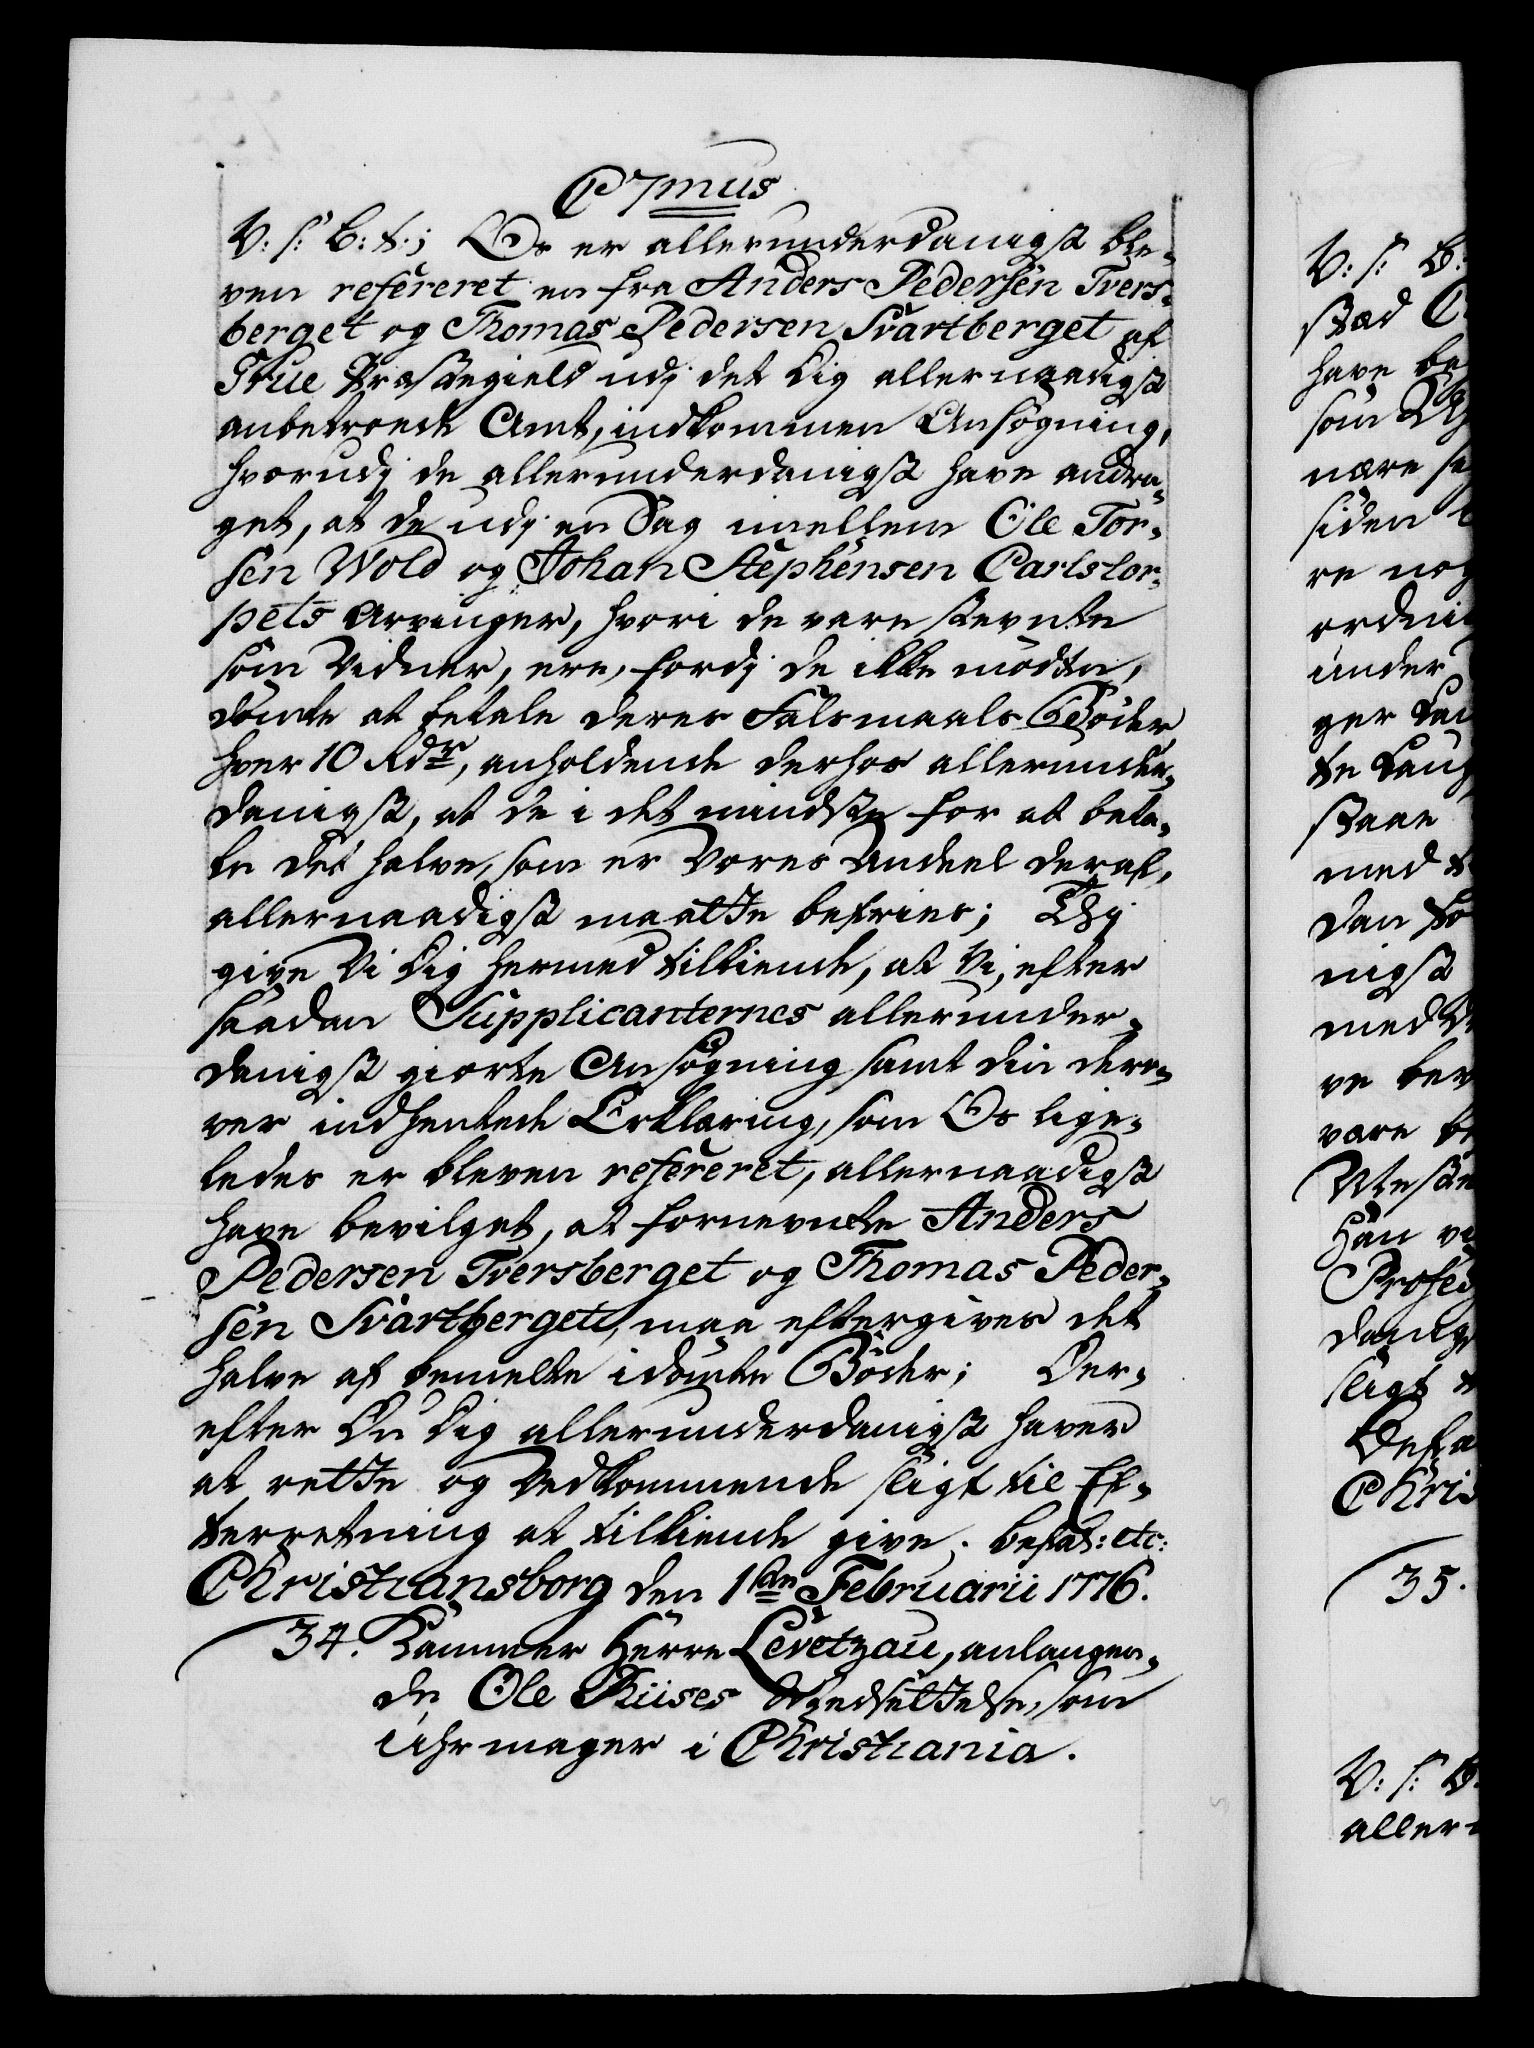 C 7mus
V: s: B: t:; Os er allerunderdanigst ble-
ven refereret en fra Anders Pedersen Tvers-
berget og Thomas Pedersen Svartberget af
True Præstegield udj det Dig allernaadigst
anbetroede Amt, indkommen Ansøgning,
hvorudj de allerunderdanigst have andra-
get, at de udj en Sag imellem Ole Tor-
sen Wold og Johan Stephensen Carlstor-
pets Arvinger, hvori de vare stevnte
som Vidner, ere, fordj de ikke mödte,
dömte at betale deres Falsmaals Böder
hver 10 Rdr, anholdende derhos allerunder-
danigst, at de i det mindste for at beta-
le det halve, som er Vores Andeel deraf,
allernaadigst maatte befries; Thj
give Vi Dig hermed tilkiende, at Vi, efter
saadan Supplicanternes allerunder-
danigst giorte Ansøgning samt din dero-
ver indhentede Erklæring, som Os lige-
ledes er bleven refereret, allernaadigst
have bevilget, at fornevnte Anders
Pedersen Tversberget og Thomas Peder-
sen Svartberget, maa eftergives det
halve af bemelte idömte Böder; Der-
efter Du Dig allerunderdanigst haver
at rette og Vedkommende sligt til Ef-
terretning at tilkiende give. Befal: etc:
Christiansborg den 1ste Februarii 1776.
34. Kammer Herre Levetzau, anlangen-
de Ole Riises Nedsettelse, som
Uhrmager i Christiania.
V: s: B:
stad
have be
som
nære
siden
re nog
ordni
under
ger
te Laug
staae
med
dan
nigst
med
ve
vare
han
Profes
danig
sligt
Befa
Chris
35.
V: s:
aller-